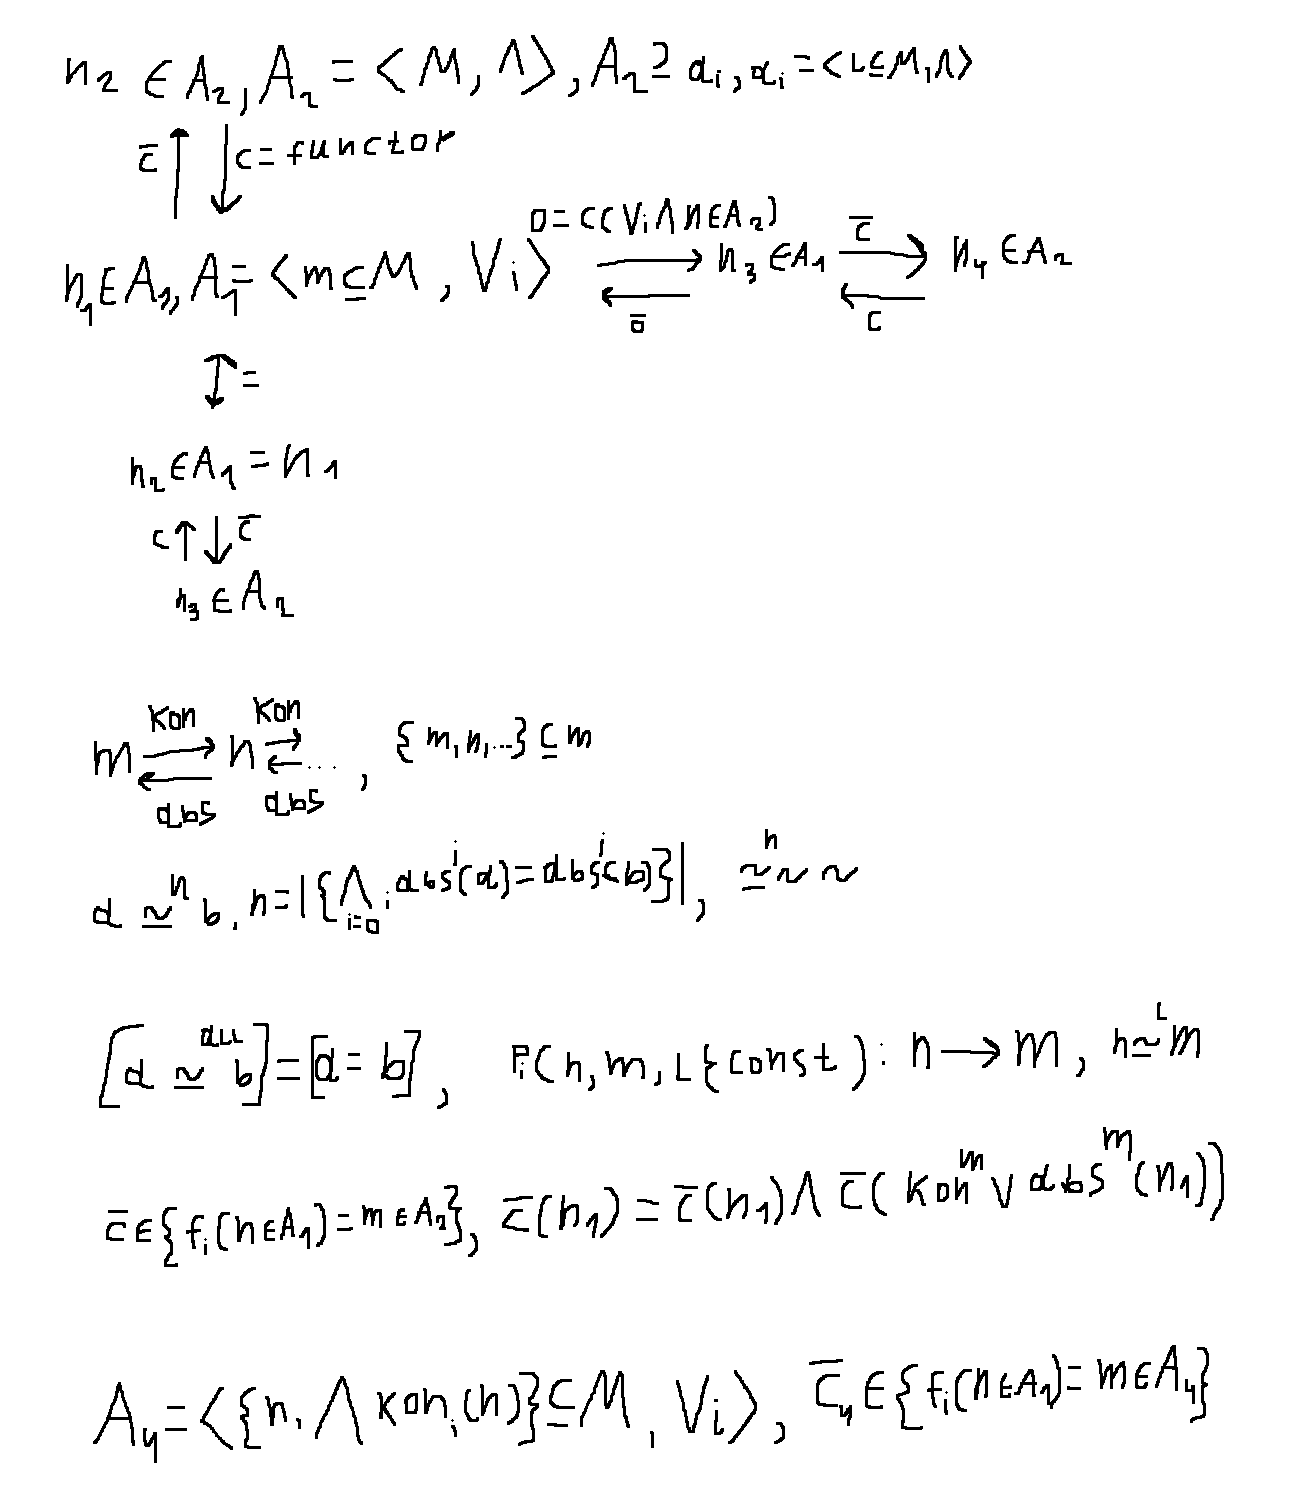 n₂ ∈ A₂, A₂ = <M, Λ>, A₂ ⊇ a_i, a_i = <L⊆M, Λ>
c̅ ↑ ↓ c = functor
o = c(V_i Λ n∈A₂)
n₁ ∈ A₁, A₁ = <m⊆M, V_i> → n₃ ∈ A₁ c̅ → n₄ ∈ A₂
← o̅ ← c
↕ =
n₂ ∈ A₁ = n₁
c ↑ ↓ c̅
n₃ ∈ A₂
kon kon
m ⇄ n ⇄ ... , {m, n, ...} ⊆ m
abs abs
a ≃ⁿ b, n = |{Λ_{i=0} i abs^i(a) = abs^i(b)}|, ≃ⁿ ~ ~
[a ≃^{all} b] = [a = b], P_i(n, m, L{const): n → m, n ≃^L m
c̅ ∈ {f_i(n∈A₁) = m∈A₂}, c̅(n₁) = c̅(n₁) Λ c̅(kon^m V abs^m(n₁))
A₄ = <{n, Λ kon_i(n)} ⊆ M, V_i>, c̅₄ ∈ {f_i(n∈A₁) = m∈A₄}